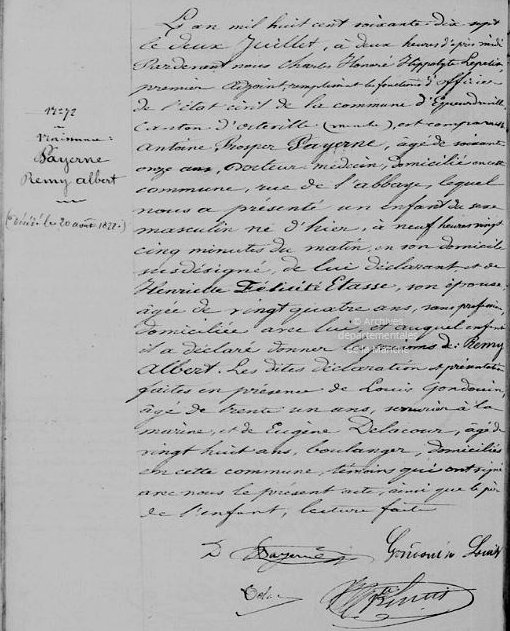 L'an mil huit cent soixante-dix sept
le deux Juillet, à deux heures d'après midi
Pardevant nous Charles Honoré Hippolyte Lepelin
premier adjoint, remplissant les fonctions d'officier
de l'état civil de la commune d'Equeurdreville
canton d'octeville (manche), est comparu
Antoine Prosper Payerne, âgé de soixante
onze ans, Docteur médecin, domicilié en cette
commune, rue de l'abbaye, lequel
nous a présenté un enfant du sexe
masculin né d'hier, à neuf heures vingt
cinq minutes du matin, en son domicile
susdésigné, de lui déclarant et de
Henriette Félicité Etasse, son épouse
âgée de vingt quatre ans, sans profession,
domiciliée avec lui et auquel enfant
il a déclaré donner les prénoms de: Remy
Albert. Les dites déclaration et présentation
faites en présence de Louis Gondouin,
âgé de trente un ans, serrurier à la
marine, et de Eugène Delacour, âgé de
vingt huit ans, boulanger, domiciliés
en cette commune, témoins qui ont signé
avec nous le présent acte, ainsi que le père
de l'enfant, lecture faite
D Payerne
Louis
Naissance:
Payerne
Remy albert
(Décédé le 20 août 1877.)
© Archives
départementales
de la Manche